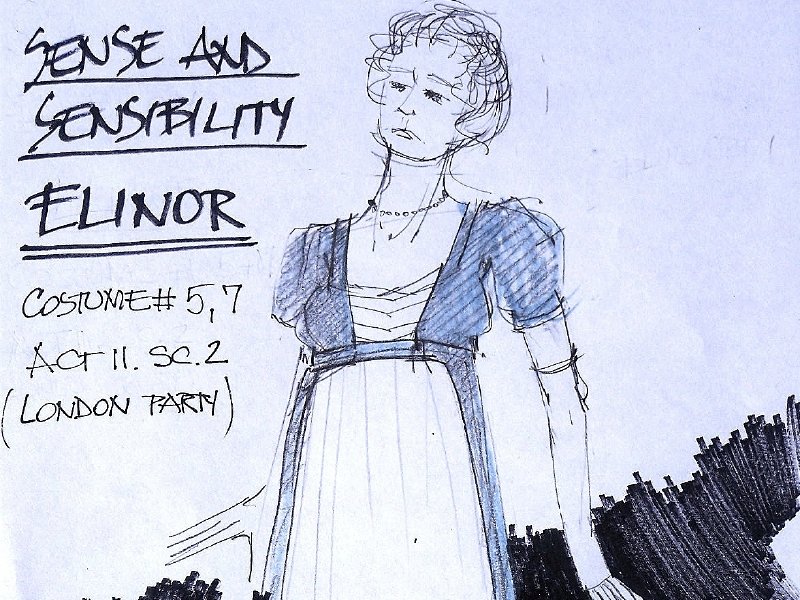 SENSE AND
SENSIBILITY
ELINOR
COSTUME # 5,7
ACT II. SC.2
(LONDON PARTY)